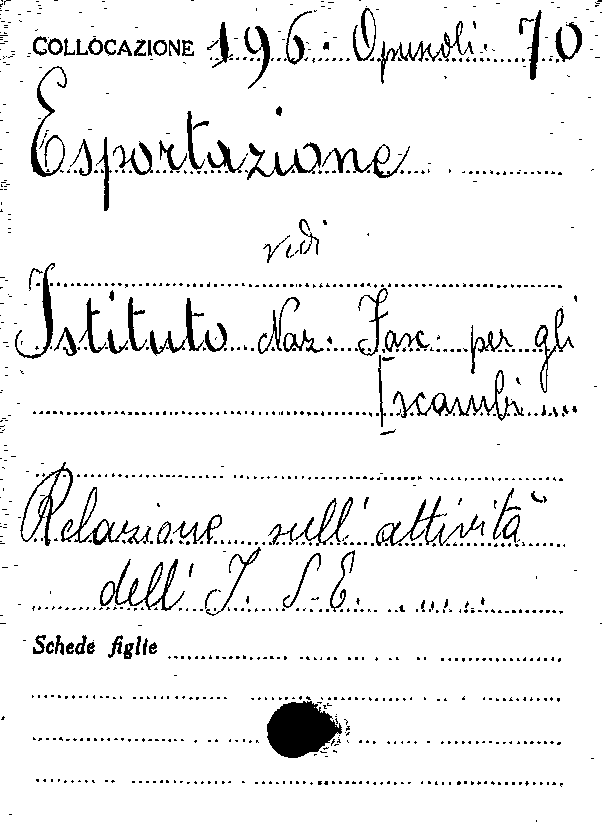 COLLOCAZIONE 196. Opuscoli. 70
Esportazione
vedi
Istituto Naz. Fasc. per gli
[scambi ....
Relazione sull'attività
dell' I. S. E. ......
Schede figlie